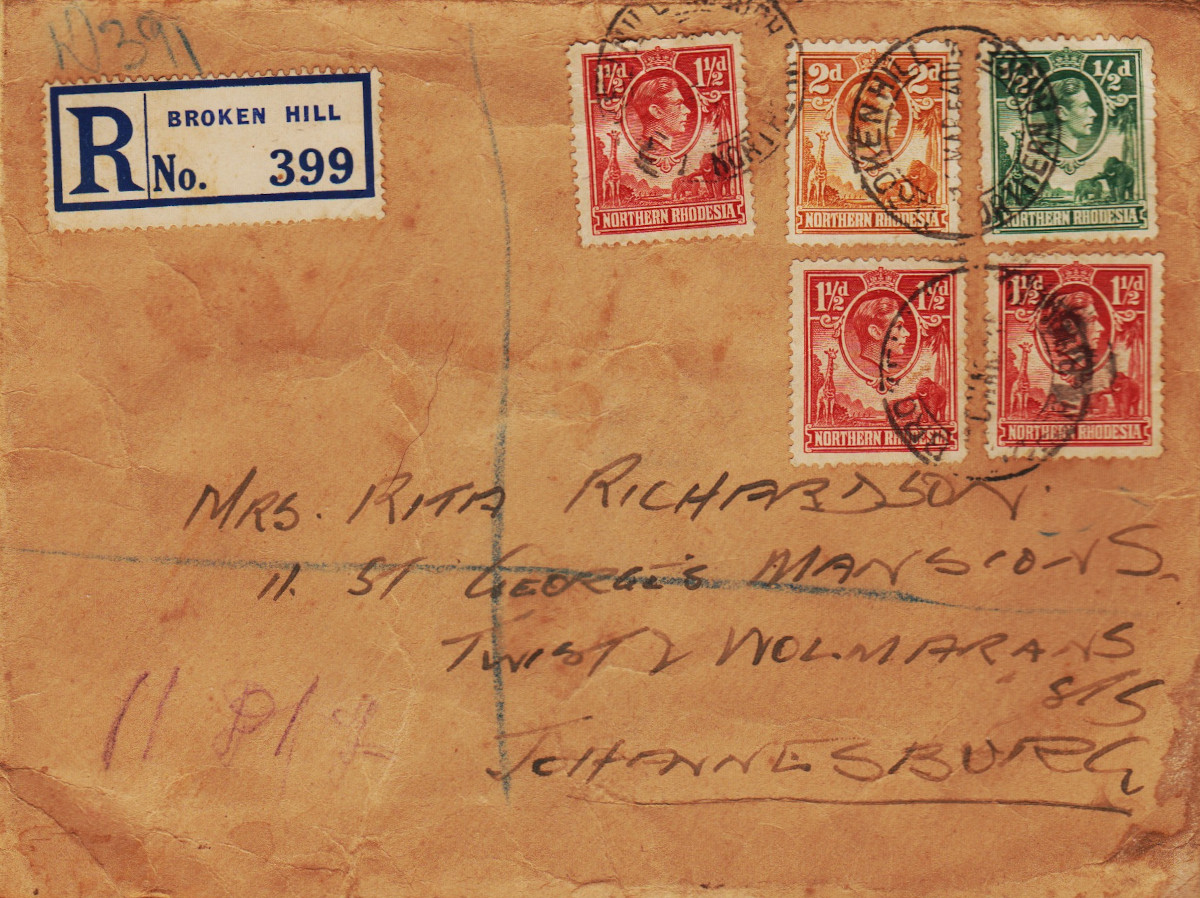 R
BROKEN HILL
No. 399
1½d 1½d
NORTHERN RHODESIA
2d 2d
NORTHERN RHODESIA
½d
NORTHERN RHODESIA
1½d 1½d
NORTHERN RHODESIA
1½d 1½d
NORTHERN RHODESIA
MRS. RITA RICHARDSON.
11. ST GEORGE'S MANSIONS.
TWIST & WOLMARANS
STS
JOHANNESBURG